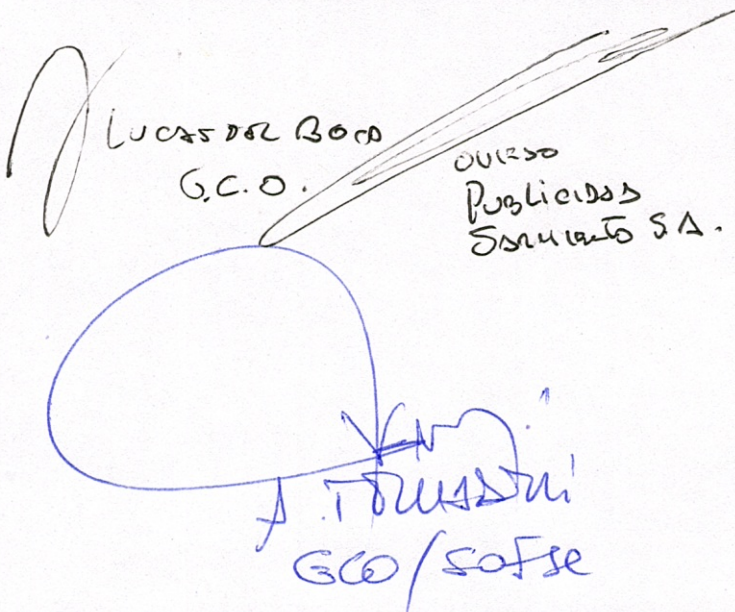 LUCAS DAL BOCO
G.C.O.
OVIEDO
PUBLICIDAD
SARMIENTO S.A.
A. TOMASSINI
GCO/SOFSE